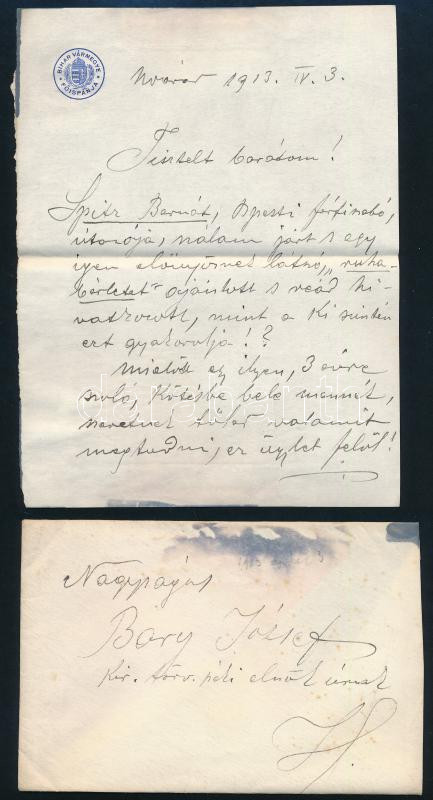 BIHAR VÁRMEGYE FŐISPÁNJA
Nvárad 1913. IV. 3.
Tisztelt barátom!
Spitz Bernát, Bpesti férfiszabó,
utazója, nálam járt s egy
igen előnyösnek látszó, "ruha-
bérletet" ajánlott s reád hi-
vatkozott, mint a ki szintén
ezt gyakorolja!?
Mielőtt egy ilyen, 3 évre
szoló, kötésbe bele mennék,
szeretnék tőled valamit
megtudni, ez ügylet felől!
darabanth
Nagyságos
Bary József
Kir. törv. széki elnök úrnak